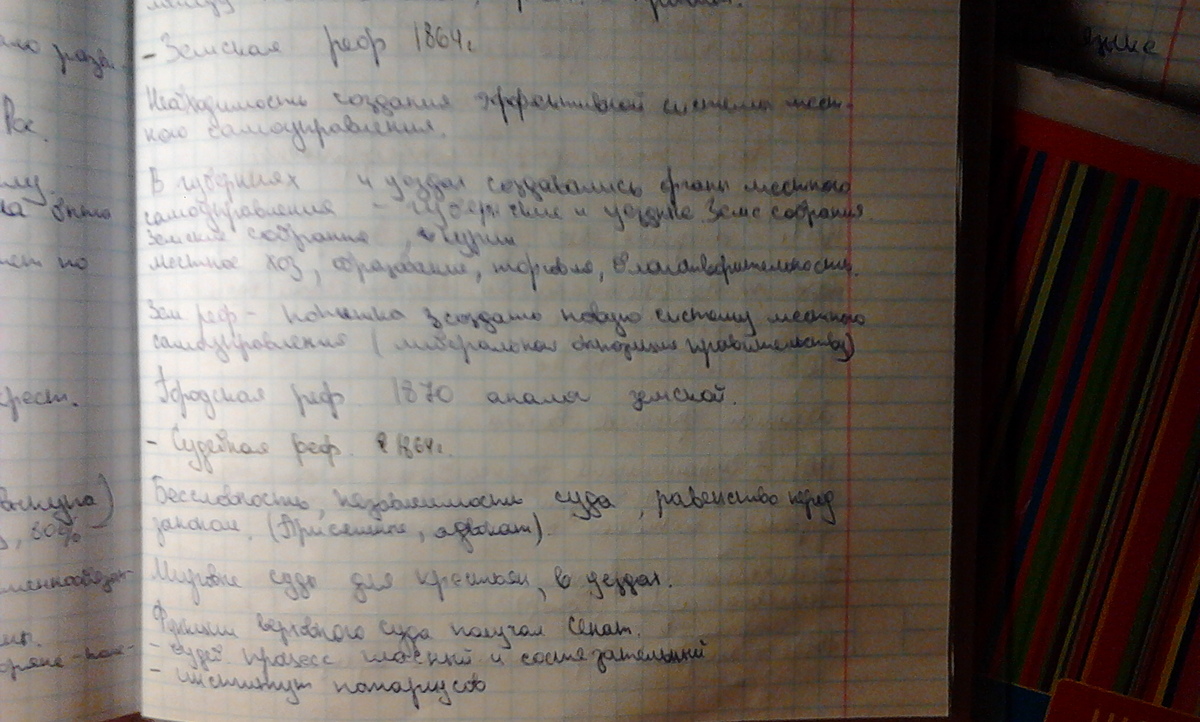 - Земская реф 1864г
Необходимость создания эффективной системы мест-
ного самоуправления.
В губерниях и уездах создавались органы местного
самоуправления - губернские и уездные Земс собрания.
Земские собрания, курии
местное хоз, образование, торговля, благотворительность.
Зем реф - попытка создать новую систему местного
самоуправления ( либеральная оппозиция правительству)
Городская реф 1870 аналог земской.
- Судебная реф. 1864г.
Бессловность, независимость суда, равенство перед
законом. (Присяжные, адвокат).
Мировые суды для крестьян, в уездах.
Функции верховного суда получал Сенат.
- судеб. процесс гласный и состязательный
- институт нотариусов
Рос.
крест.
, 80%